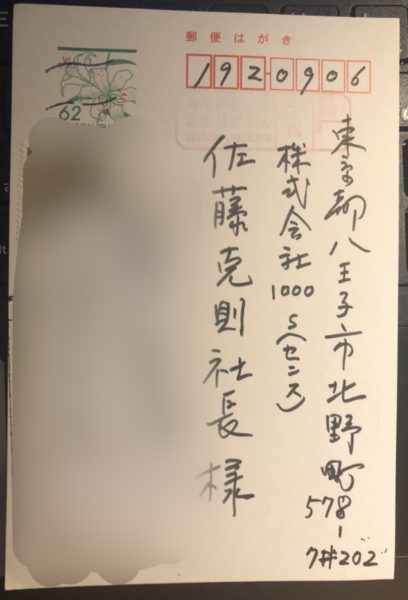 郵便はがき
62
1920906
東京都八王子市北野町
578-
7井202
株式会社1000S(センス)
佐藤克則社長様